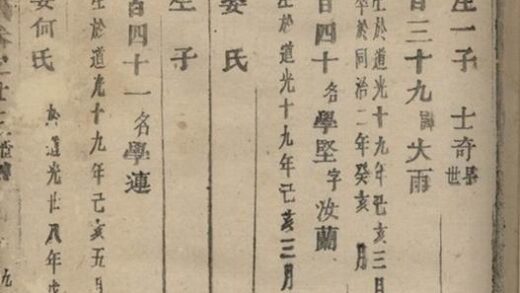 生一子 士奇
世
百三十九 大雨
生於道光十九年己亥三月
卒於同治二年癸亥 月
百四十 名學堅字汝蘭
生於道光十九年己亥三月
娶 氏
生 子
百四十一 名學連
生於道光十九年己亥五月
娶何氏 於道光廿八年戊